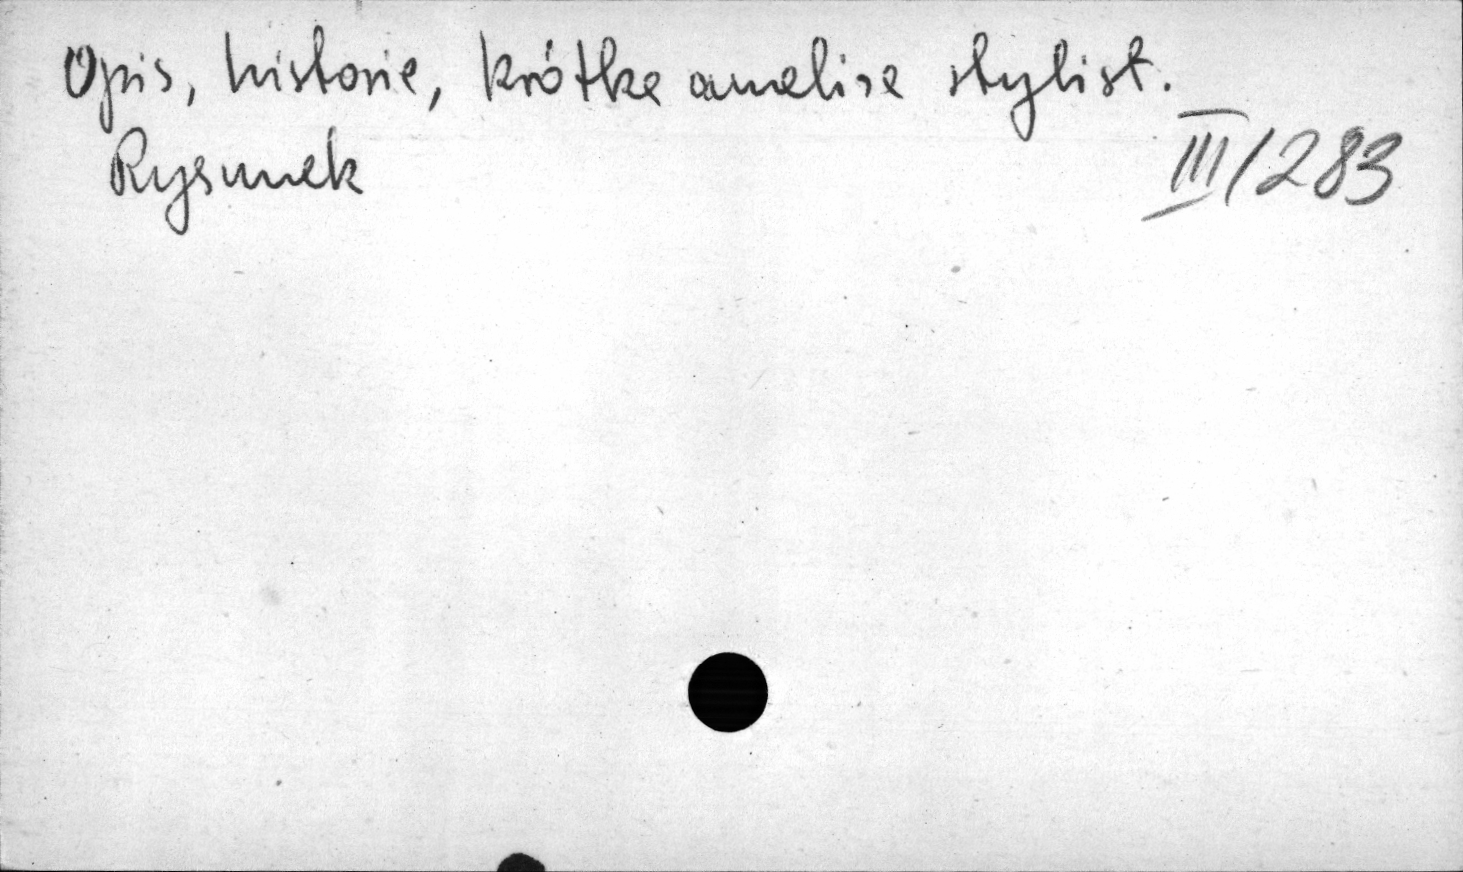 Opis, historia, krótka analiza stylist.
Rysunek
III/283